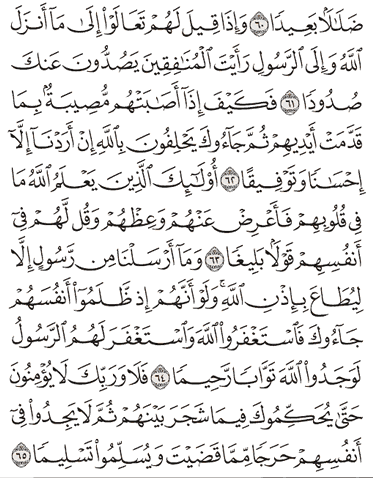 ضَلَٰلَۢا بَعِيدٗا ٦٠ وَإِذَا قِيلَ لَهُمۡ تَعَالَوۡاْ إِلَىٰ مَآ أَنزَلَ
ٱللَّهُ وَإِلَى ٱلرَّسُولِ رَأَيۡتَ ٱلۡمُنَٰفِقِينَ يَصُدُّونَ عَنكَ
صُدُودٗا ٦١ فَكَيۡفَ إِذَآ أَصَٰبَتۡهُم مُّصِيبَةُۢ بِمَا
قَدَّمَتۡ أَيۡدِيهِمۡ ثُمَّ جَآءُوكَ يَحۡلِفُونَ بِٱللَّهِ إِنۡ أَرَدۡنَآ إِلَّآ
إِحۡسَٰنٗا وَتَوۡفِيقًا ٦٢ أُوْلَٰٓئِكَ ٱلَّذِينَ يَعۡلَمُ ٱللَّهُ مَا
فِي قُلُوبِهِمۡ فَأَعۡرِضۡ عَنۡهُمۡ وَعِظۡهُمۡ وَقُل لَّهُمۡ فِيٓ
أَنفُسِهِمۡ قَوۡلَۢا بَلِيغٗا ٦٣ وَمَآ أَرۡسَلۡنَا مِن رَّسُولٍ إِلَّا
لِيُطَاعَ بِإِذۡنِ ٱللَّهِۚ وَلَوۡ أَنَّهُمۡ إِذ ظَّلَمُوٓاْ أَنفُسَهُمۡ
جَآءُوكَ فَٱسۡتَغۡفَرُواْ ٱللَّهَ وَٱسۡتَغۡفَرَ لَهُمُ ٱلرَّسُولُ
لَوَجَدُواْ ٱللَّهَ تَوَّابٗا رَّحِيمٗا ٦٤ فَلَا وَرَبِّكَ لَا يُؤۡمِنُونَ
حَتَّىٰ يُحَكِّمُوكَ فِيمَا شَجَرَ بَيۡنَهُمۡ ثُمَّ لَا يَجِدُواْ فِيٓ
أَنفُسِهِمۡ حَرَجٗا مِّمَّا قَضَيۡتَ وَيُسَلِّمُواْ تَسۡلِيمٗا ٦٥